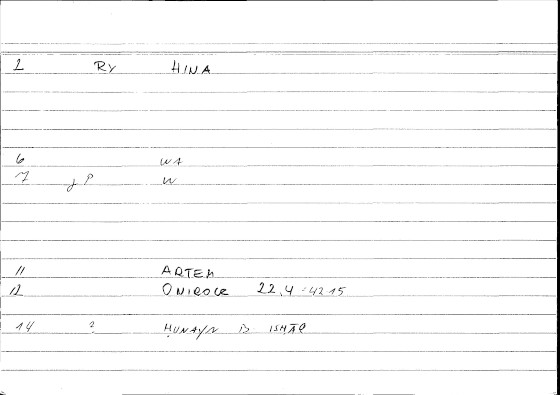 1 RY HINA
6 WA
7 P W
11 ARTEM
12 ONIROCR 22,4 = 4215
14 ? ḤUNAYN B ISḤĀQ